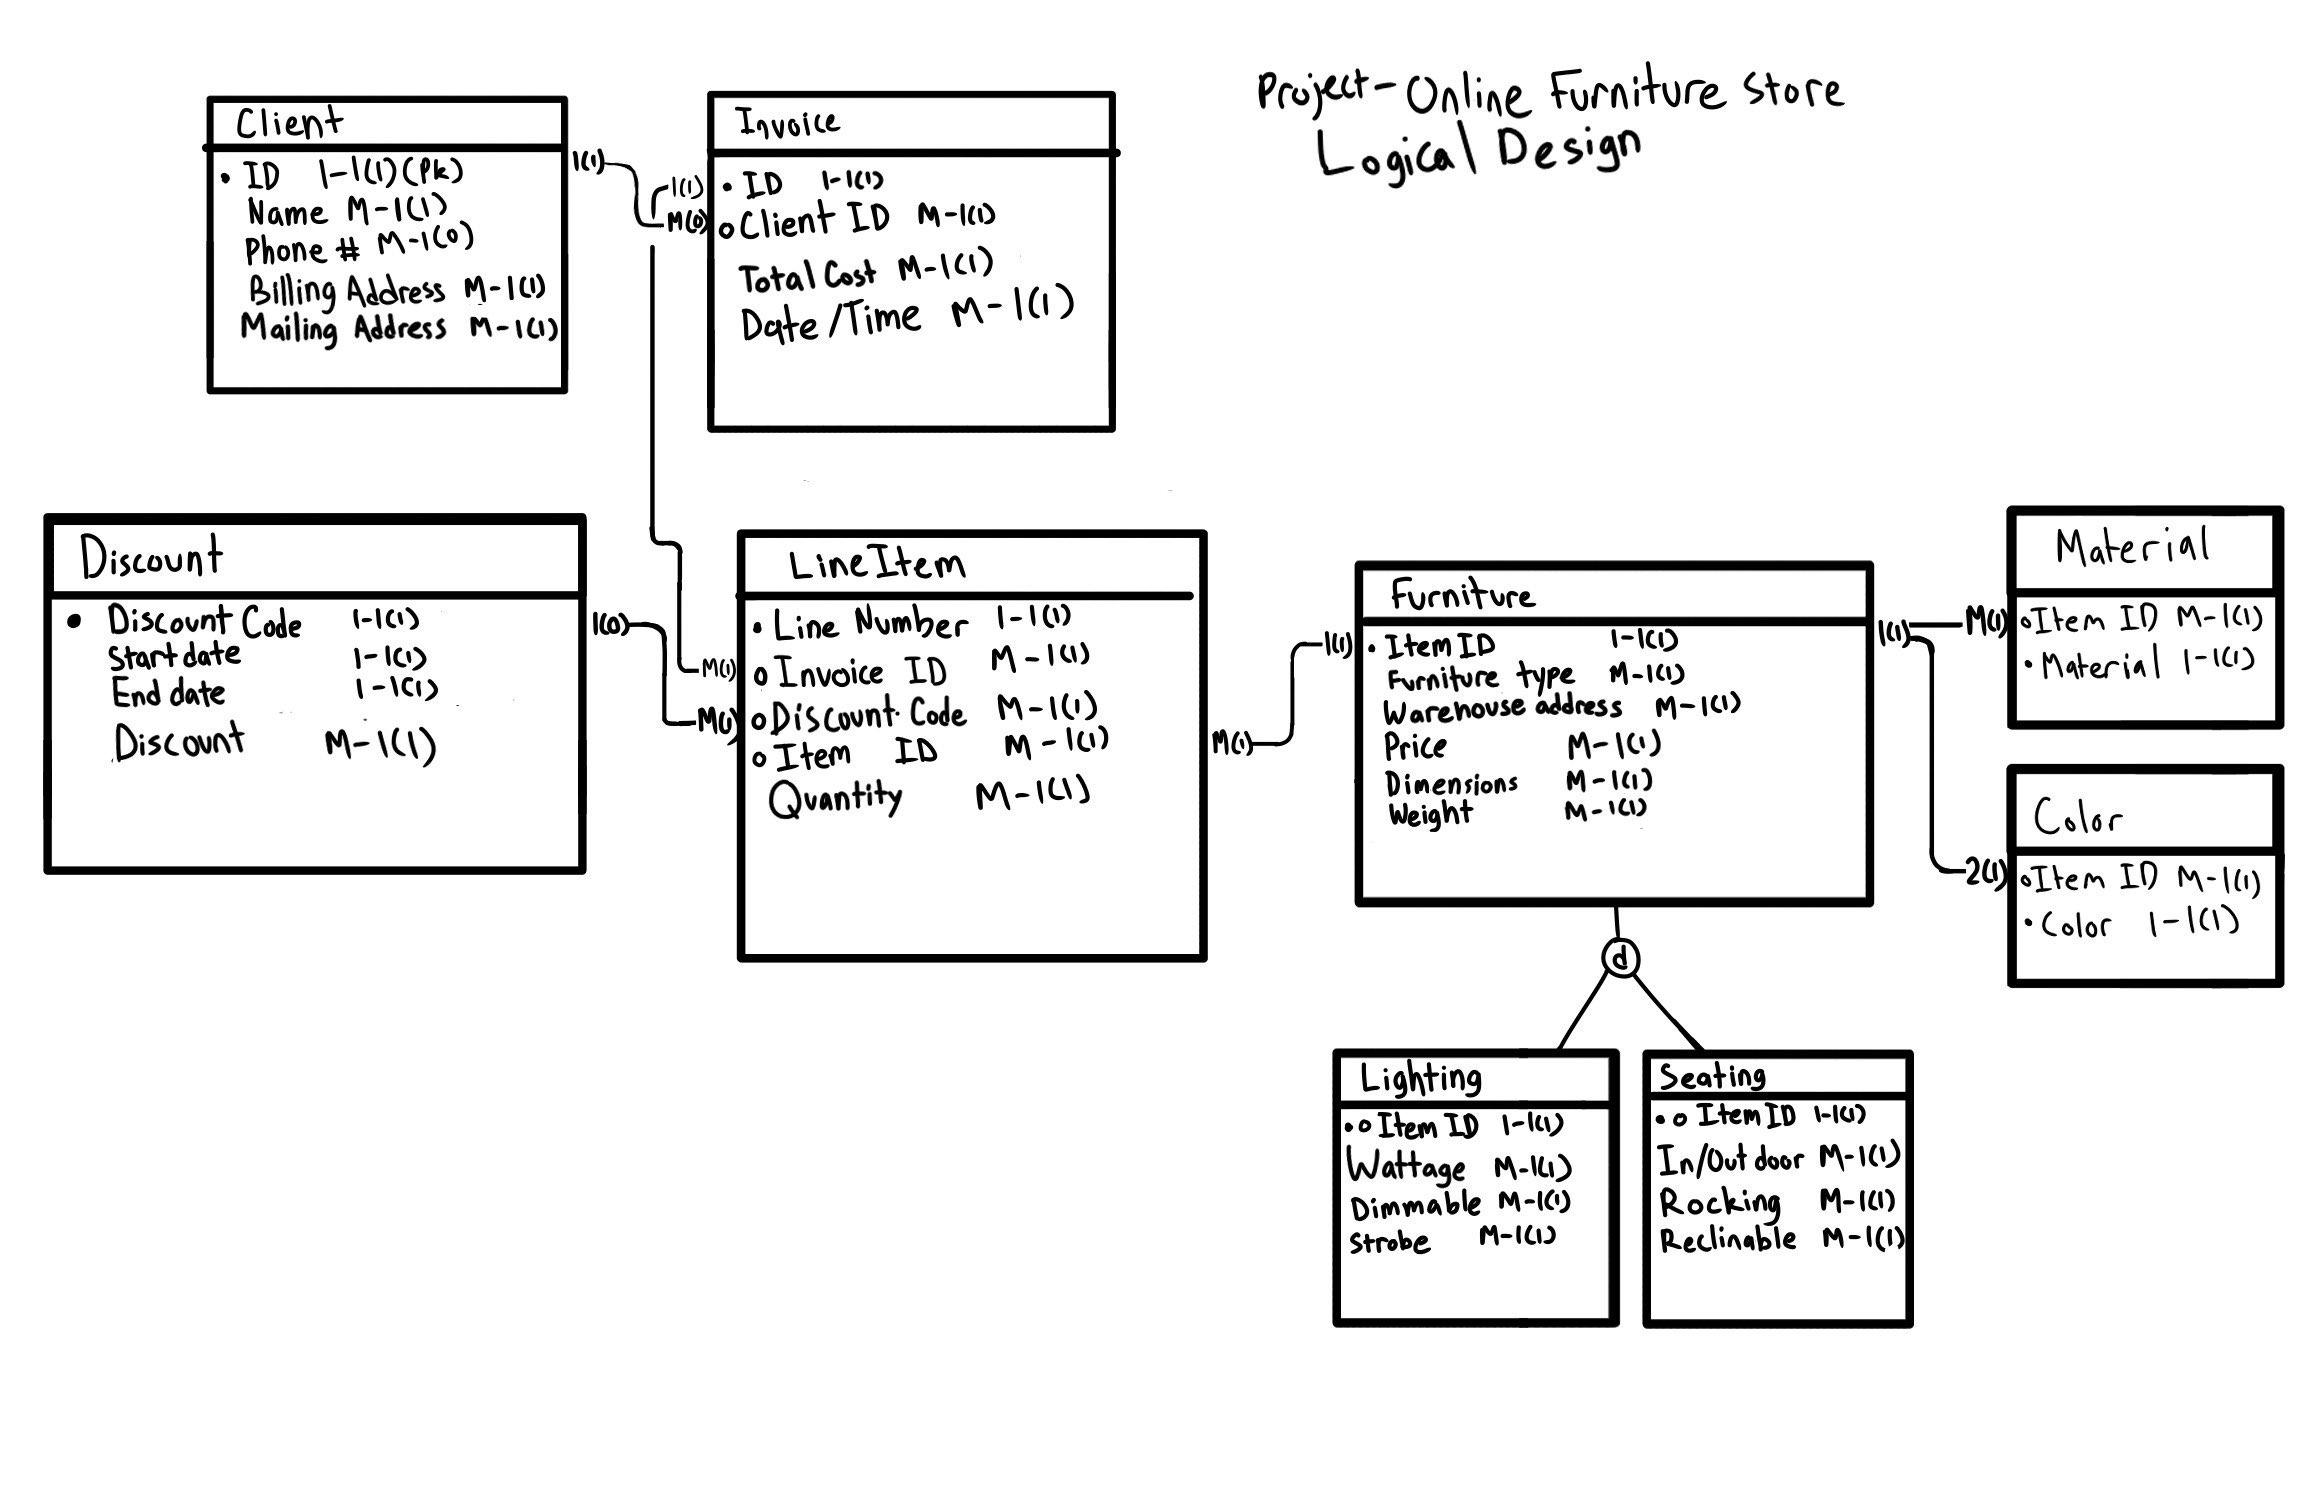 Project - Online Furniture Store
Logical Design
Client
• ID 1-1(1)(Pk)
Name M-1(1)
Phone # M-1(0)
Billing Address M-1(1)
Mailing Address M-1(1)
1(1)
1(1)
M(0)
Invoice
• ID 1-1(1)
o Client ID M-1(1)
Total Cost M-1(1)
Date/Time M-1(1)
Discount
• Discount Code 1-1(1)
Start date 1-1(1)
End date 1-1(1)
Discount M-1(1)
1(0)
M(1)
M(1)
LineItem
• Line Number 1-1(1)
o Invoice ID M-1(1)
o Discount Code M-1(1)
o Item ID M-1(1)
Quantity M-1(1)
M(1)
1(1)
Furniture
• Item ID 1-1(1)
Furniture type M-1(1)
Warehouse address M-1(1)
Price M-1(1)
Dimensions M-1(1)
Weight M-1(1)
1(1)
M(1)
2(1)
Material
o Item ID M-1(1)
• Material 1-1(1)
Color
o Item ID M-1(1)
• Color 1-1(1)
d
Lighting
• o Item ID 1-1(1)
Wattage M-1(1)
Dimmable M-1(1)
Strobe M-1(1)
Seating
• o Item ID 1-1(1)
In/Outdoor M-1(1)
Rocking M-1(1)
Reclinable M-1(1)